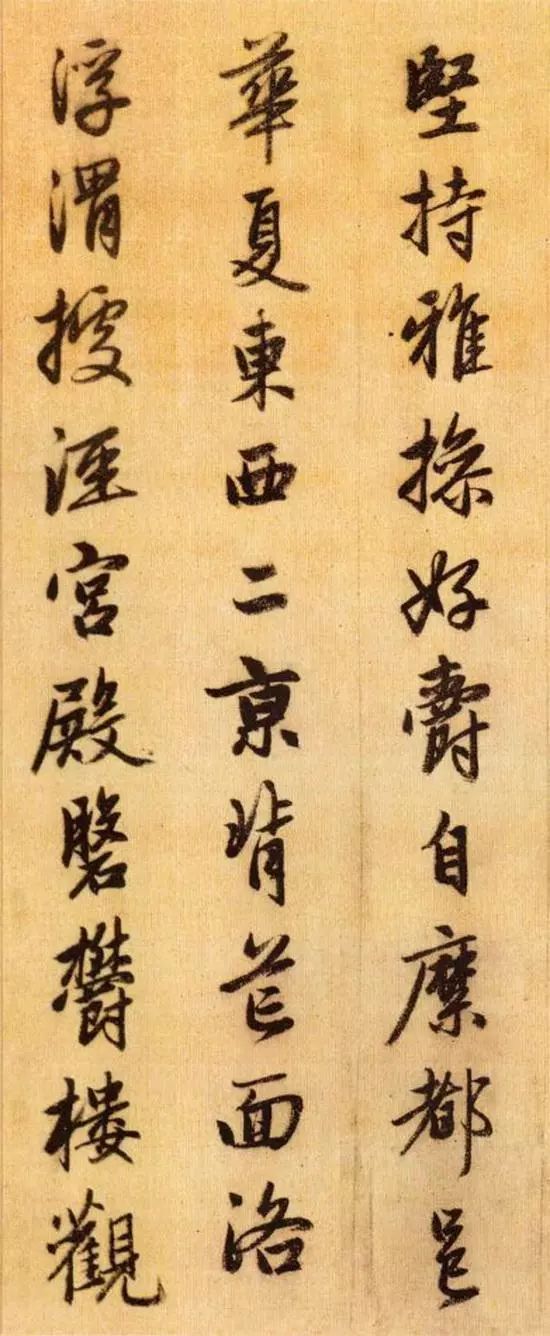 堅持雅操好爵自縻都邑
華夏東西二京背芒面洛
浮渭據涇宮殿磐鬱樓觀